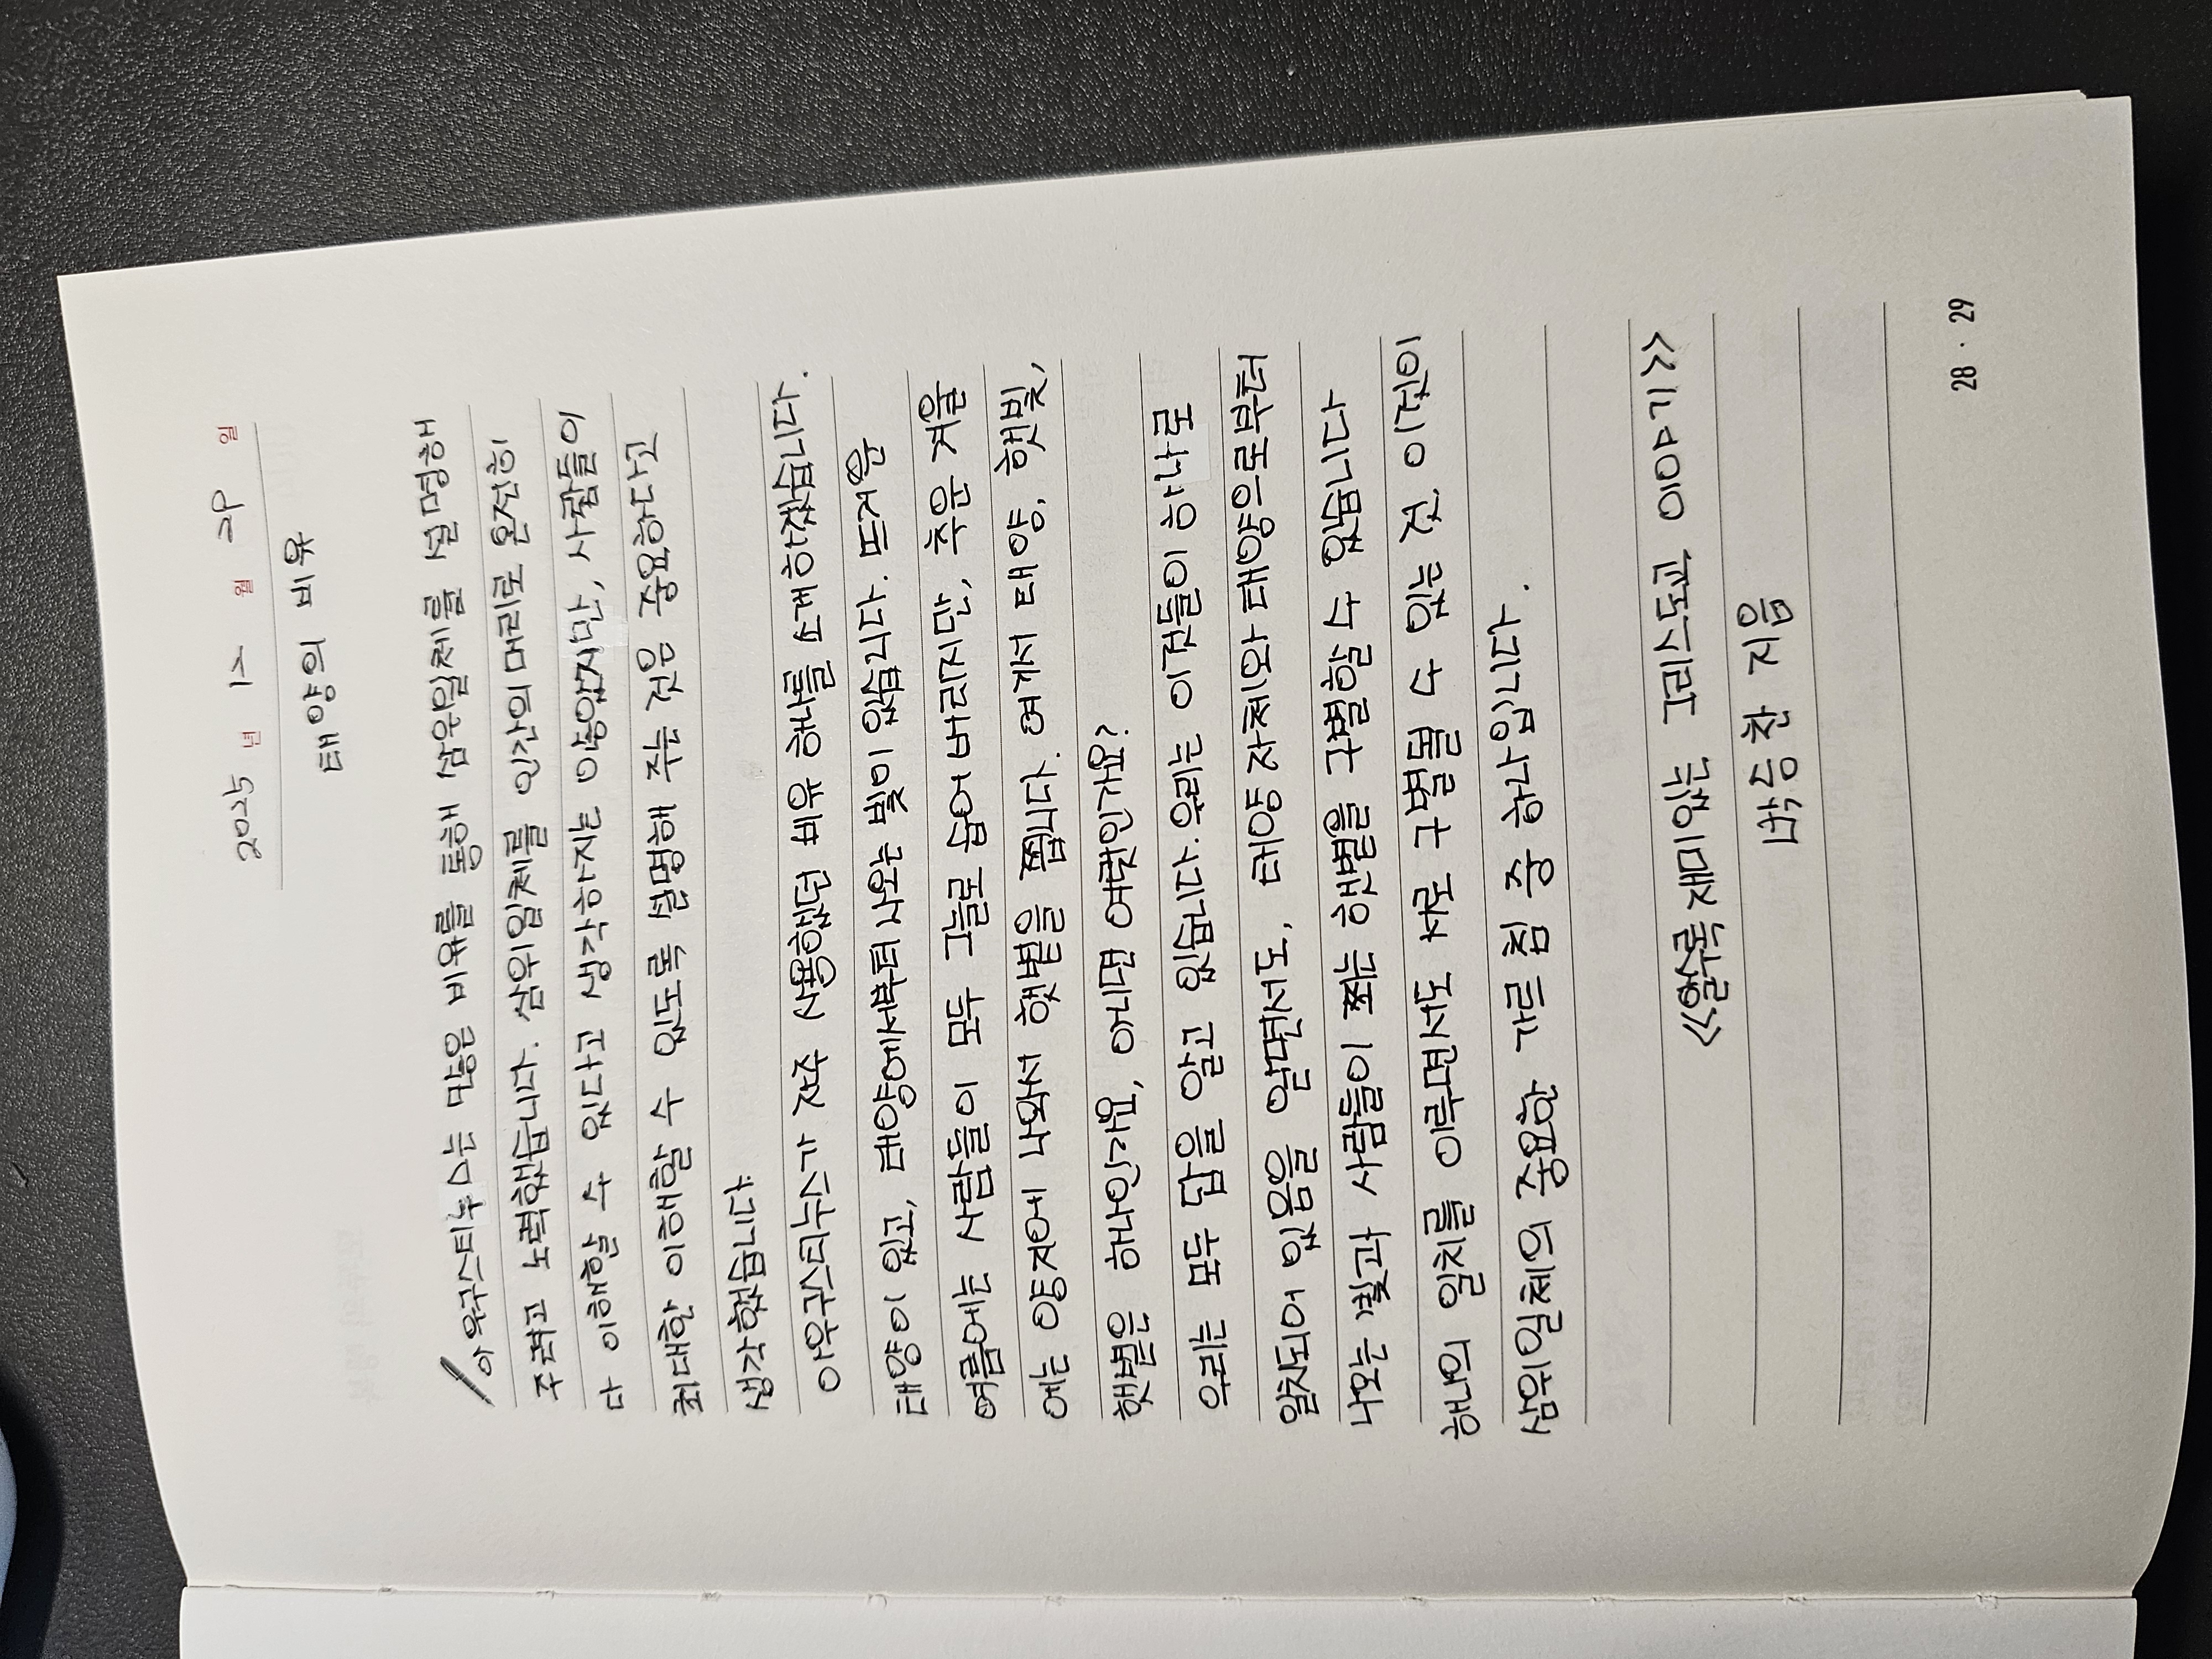 2025년 12월 24일
태양의 비유
아우구스티누스는 많은 비유를 통해 삼위일체를 설명해
주려고 노력했습니다. 삼위일체를 인간의 머리로 온전히
다 이해할 수 있다고 생각하지는 않았지만, 사람들이
최대한 이해할 수 있도록 설명해 주는 것은 중요하다고
생각했습니다
아우구스티누스가 자주 사용했던 비유 하나를 소개하겠습니다.
태양이 있고, 태양에서부터 나오는 빛이 있습니다. 뜨거운
여름에는 사람들이 모두 그늘로 숨어 버리지만, 추운 겨울
에는 양지에 나와서 햇볕을 쬡니다. 여기서 태양, 햇빛,
햇볕은 하나인가요, 아니면 여럿인가요?
우리는 모두 답을 알고 있습니다. 우리는 이것들이 하나로
일치되어 있음을 알면서도, 태양 자체와 태양으로부터
나오는 빛과 사람들이 쬐는 햇볕을 구별할 수 있습니다.
하나의 일치를 이루면서도 서로 구별될 수 있는 것 이것이
삼위일체의 중요한 가르침 중 하나입니다.
<<알수록 재미있는 그리스도교 이야기>>
박승찬 지음
28 · 29